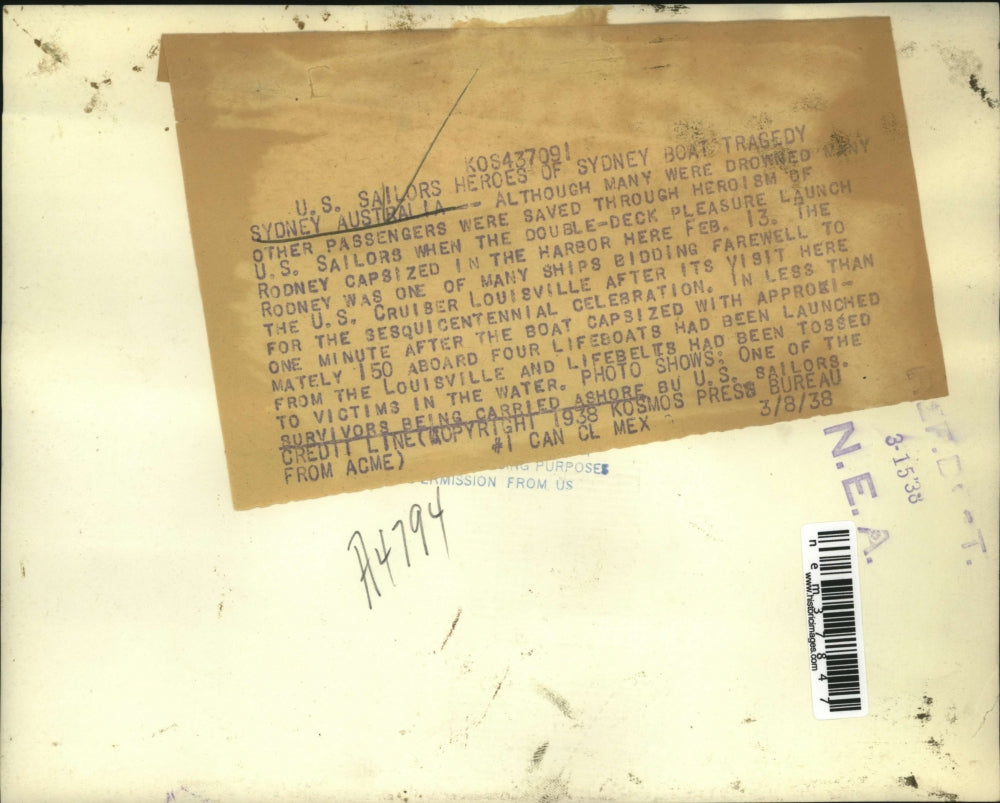 KOS437091
U.S. SAILORS HEROES OF SYDNEY BOAT TRAGEDY
SYDNEY AUSTRALIA -- ALTHOUGH MANY WERE DROWNED MANY
OTHER PASSENGERS WERE SAVED THROUGH HEROISM OF
U.S. SAILORS WHEN THE DOUBLE-DECK PLEASURE LAUNCH
RODNEY CAPSIZED IN THE HARBOR HERE FEB. 13. THE
RODNEY WAS ONE OF MANY SHIPS BIDDING FAREWELL TO
THE U.S. CRUISER LOUISVILLE AFTER ITS VISIT HERE
FOR THE SESQUICENTENNIAL CELEBRATION. IN LESS THAN
ONE MINUTE AFTER THE BOAT CAPSIZED WITH APPROXI-
MATELY 150 ABOARD FOUR LIFEBOATS HAD BEEN LAUNCHED
FROM THE LOUISVILLE AND LIFEBELTS HAD BEEN TOSSED
TO VICTIMS IN THE WATER. PHOTO SHOWS: ONE OF THE
SURVIVORS BEING CARRIED ASHORE BU U.S. SAILORS.
CREDIT LINE (COPYRIGHT 1938 KOSMOS PRESS BUREAU
FROM ACME) #1 CAN CL MEX 3/8/38
PURPOSES
FROM US
A4794
N.E.A.
3-15 38
nem37847
www.historicimages.com